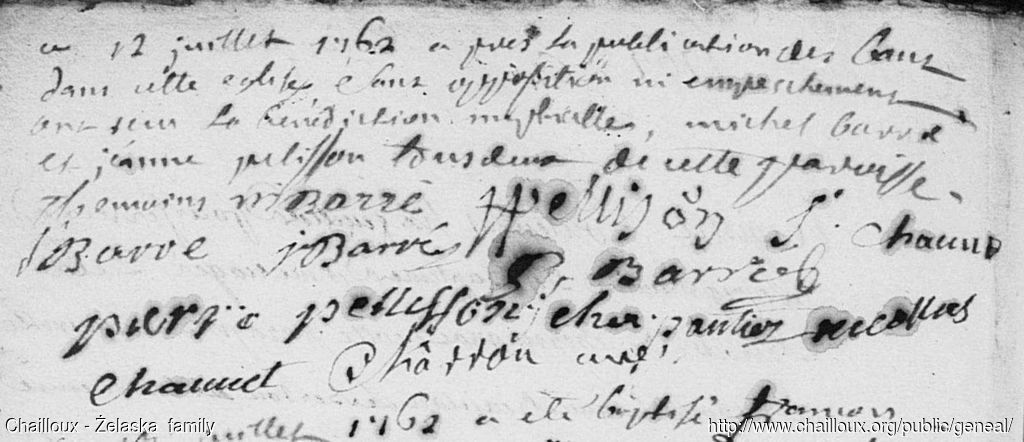 ce 12 juillet 1762 a pres la publication des bans
dans cette eglise & sans opposition ni empeschement
ont receu la bénédiction nuptialle, michel barré
et jeanne pelisson tous deux de cette paroisse
themoins m Barré ppellison J. chauve
Barré j Barré P. Barré
pierre pellisson charpantier nicollas
chauvet Charron curé
juillet 1762 a eté baptisé
Chailloux - Żelaska family http://www.chailloux.org/public/geneal/